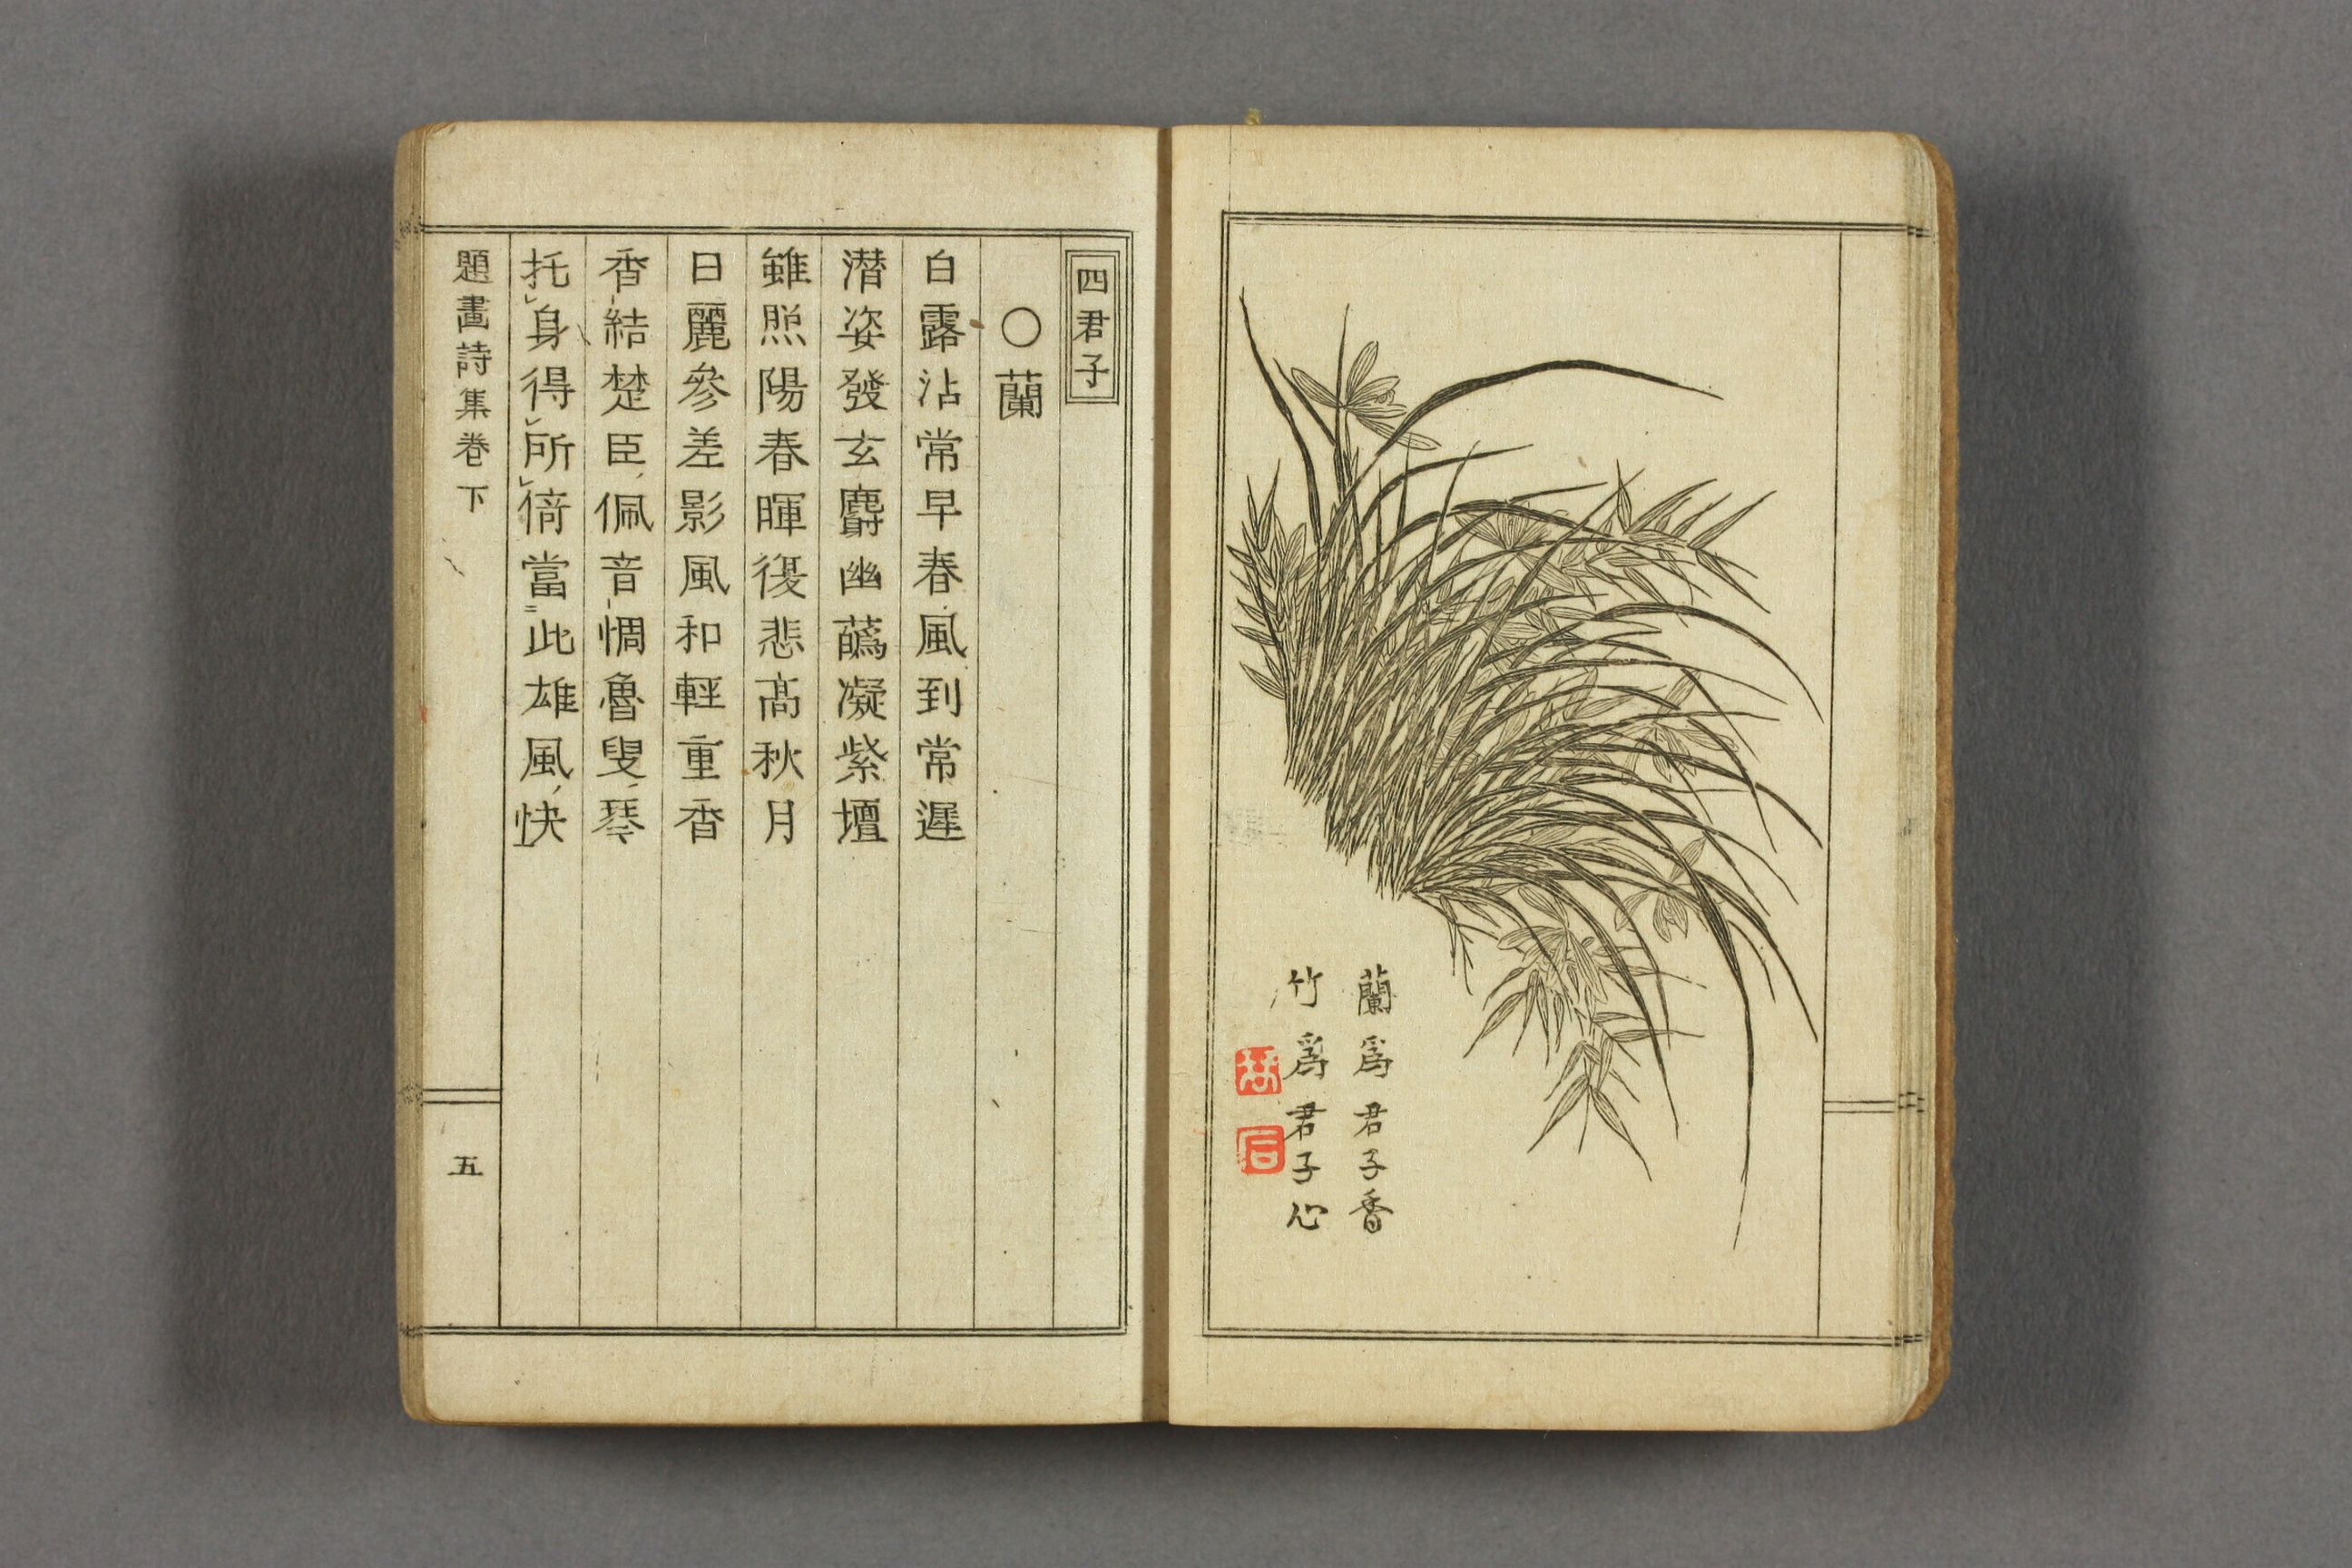 蘭爲君子香
竹爲君子心
四君子
○蘭
白露沾常早春風到常遲
潜姿發玄麝幽藹凝紫壇
雖照陽春暉復悲高秋月
日麗參差影風和輕重香
香結楚臣佩音惆魯叟琴
托身得所倚當此雄風快
題畫詩集卷下
五